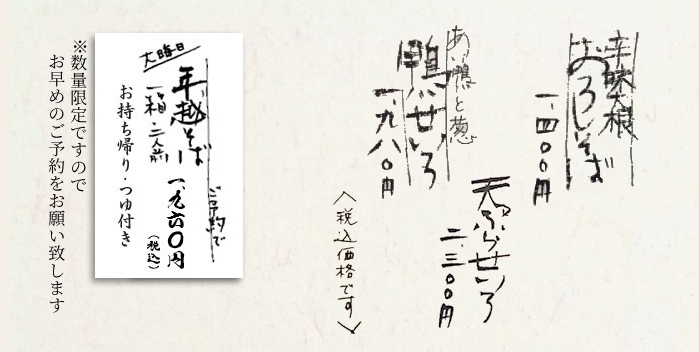 辛味大根
おろしそば
一、四〇〇円
あい鴨と葱
鴨せいろ
一、九八〇円
天ぷらせいろ
二、三〇〇円
〈税込価格です〉
ご予約で
大晦日
年越そば
一、九六〇円
(税込)
一箱・二人前
お持ち帰り・つゆ付き
※数量限定ですので
お早めのご予約をお願い致します